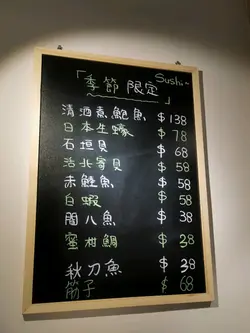 Sushi~
「季節限定」
清酒煮鮑魚 $138
日本生蠔 $78
石垣貝 $68
活北寄貝 $58
赤鯥魚 $58
白蝦 $58
間八魚 $38
蜜柑鯛 $38
秋刀魚 $38
筋子 $68